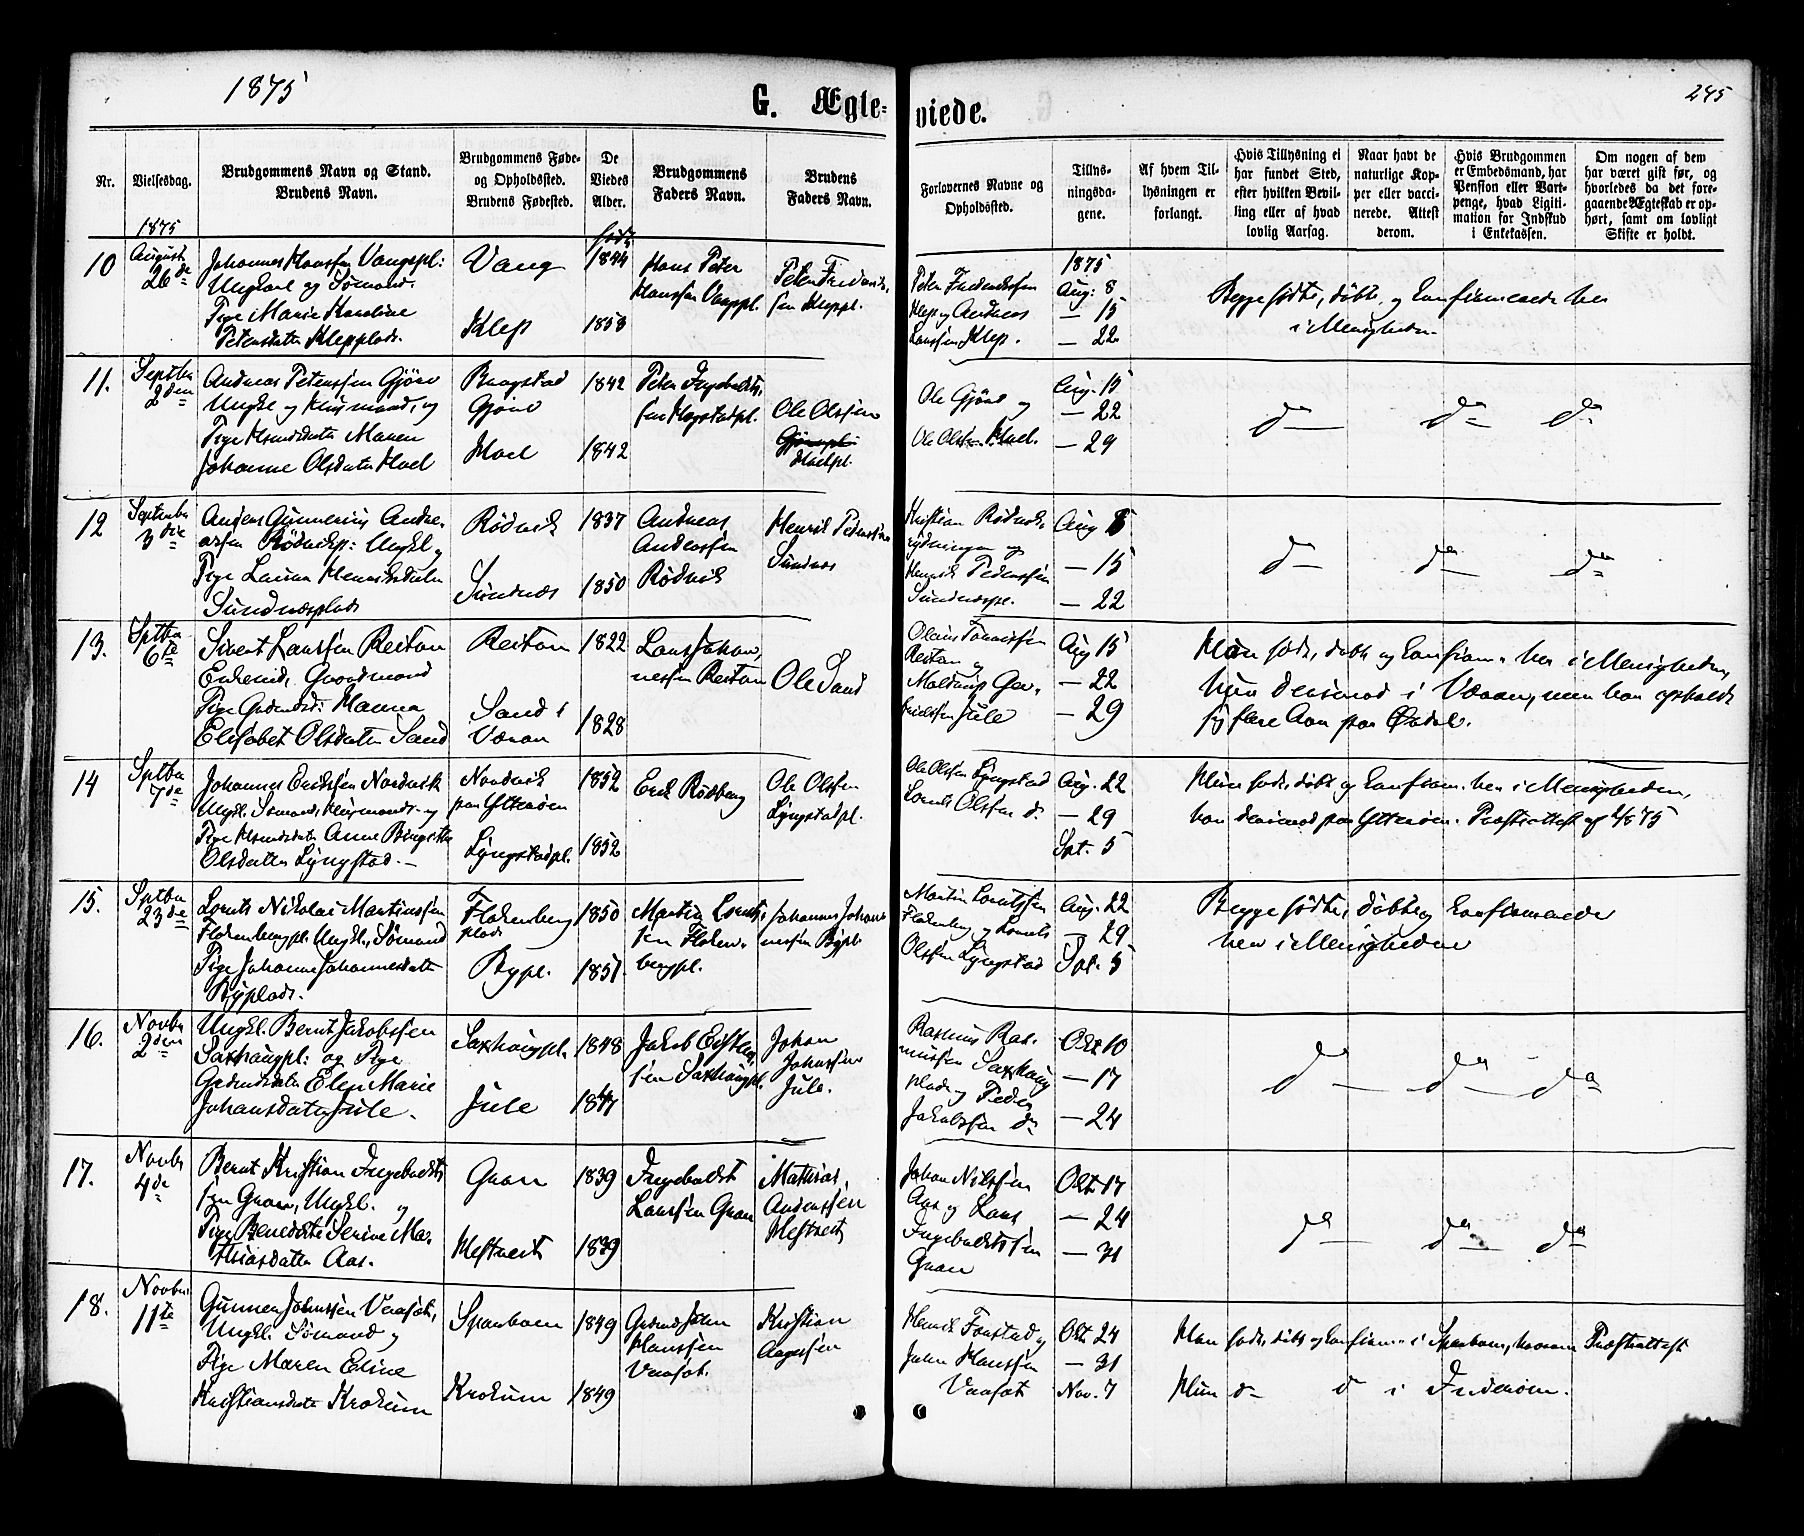 1875
G. Ægte-
viede.
245
Nr.
Vielsesdag.
Brudgommens Navn og Stand.
Brudens Navn.
Brudgommens Føde-
og Opholdssted.
Brudens Fødested.
De
Viedes
Alder.
Brudgommens
Faders Navn.
Brudens
Faders Navn.
Forlovernes Navne og
Opholdssted.
Tillys-
ningsda-
gene.
Af hvem Til-
lysningen er
forlangt.
Hvis Tillysning ei
har fundet Sted,
efter hvilken Bevil-
ling eller af hvad
lovlig Aarsag.
Naar havt de
naturlige Kop-
per eller vacci-
nerede. Attest
derom.
Hvis Brudgommen
er Embedsmand, har
Pension eller Vart-
penge, hvad Ligiti-
mation for Indskud
i Enkekassen.
Om nogen af dem
har været gift før, og
hvorledes da det fore-
gaaende Ægteskab er op-
hørt, samt om lovligt
Skifte er holdt.
1875
10
August
26de
Johannes Hanssen Vangspl:
Ungkarl og Sømand.
Pige Marie Karoline
Petersdatter Klepplads.
Vang
Klep
født
1844
1853
Hans Peter
Hanssen Vangpl.
Peter Fredriks-
sen Kleppl.
Peter Fredrikssen
Klep og Andreas
Larssen Klep.
1875
Aug: 8
— 15
— 22
Begge fødte, døbte og konfirmerede her
i Menigheden.
11.
Septbr
2den
Andreas Peterssen Gjørv
Ungkl og Husmand, og
Pige Maren
Johanne Olsdatter Hoel
Gjørv
Hoel
1842
1842
Peter Ingebrigts-
sen
Ole Olssen
Hoelpl.
Ole Gjørv og
Ole Olssen Hoel.
Aug. 15
— 22
— 29
do do do
12
Septembr
3die
Anders Gunnerius Andre-
assen Rødvikp: Ungkl og
Pige Laura Henriksdatter
Sundnæsplads
Rødvik
Sundnæs
1837
1850
Andreas
Anderssen
Rødvik
Henrik Pederssen
Sundnæs
Kristian Rødvik-
rydningen og
Henrik Pederssen
Sundnæspl.
Aug 8
— 15
— 22
do do do
13.
Sptbr
6te
Sivert Larssen Reitan
Enkemd, Gaardmand
Pige Gaardmd: Hanna
Elisabet Olsdatter Sand
Reitan
Sand i
Væran
1822
1828
Lars Johan-
nessen Reitan
Ole Sand
Reitan og
Jule
Aug 15
— 22
— 29
Han født, døbt og konfirm. her i Menigheden,
hun derimod i Væran, men har opholdt
sig flere Aar paa
14
Sptbr
7de
Johannes Erikssen Nordvik
Ungkl. Sømand, Husmands- og
Pige Anne Birgitte
Olsdatter Lyngstad.—
Nordvik
paa Ytterøen
Lyngstadpl.
1852
1852
Erik Rødberg
Ole Olssen
Lyngstadpl.
Ole Olssen Lyngstad
Lornts Olssen do
Aug. 22
— 29
Spt. 5
Hun født, døbt og konfirm. her i Menigheden,
han derimod paa Ytterøen. Præsteattest af
15.
Sptbr
23de
Lornts Nikolai Martinssen
Flokenbergpl. Ungkl, Sømand
Pige Johanna Johannesdatter
Byplads.
Flokenberg
plads
Bypl.
1850
1851
Martin Lornts-
sen Floken-
bergpl.
Johannes Johan-
nessen Bypl.
Martin Lorntssen
Flokenberg og Lornts
Olssen Lyngstad
Aug. 22
— 29
Spt. 5
Begge fødte, døbte og konfirmerede
her i Menigheden
16.
Novbr
2den
Ungkl. Bernt Jakobssen
Saxhaugpl: og Pige
Elen Marie
Johansdatter Jule.
Saxhaugpl.
Jule
1848
1847
Jakob
Saxhaugpl.
Johan
Johnssen
Jule.
Rasmus Ras-
mussen Saxhaug
plads og Peder
Jakobssen do
Okt 10
— 17
— 24
do do do
17.
Novbr
4de
Bernt Kristian Ingebrigts-
sen Gran, Ungkl. og
Pige Benedikte Serine Ma-
thiasdatter Aas.
Gran
1839
1839
Ingebrigt
Larssen Gran
Mathias
Anderssen
Johan Nilssen
Aas og Lars
Ingebrigtssen
Gran
Okt 17
— 24
— 31
do do do
18.
Novbr
11te
Gunner Johnssen
Ungkl. Sømand og
Pige Maren Eline
Kristiansdatter Krokum
Sparboen
Krokum
1849
1849
Hanssen
Kristian
Aagessen
Henrik og
John Hanssen
Okt 24
— 31
Nov. 7
Han født, døbt og konfirm. i Sparboen, hvorom Præsteattest
Hun do do i Inderøen.